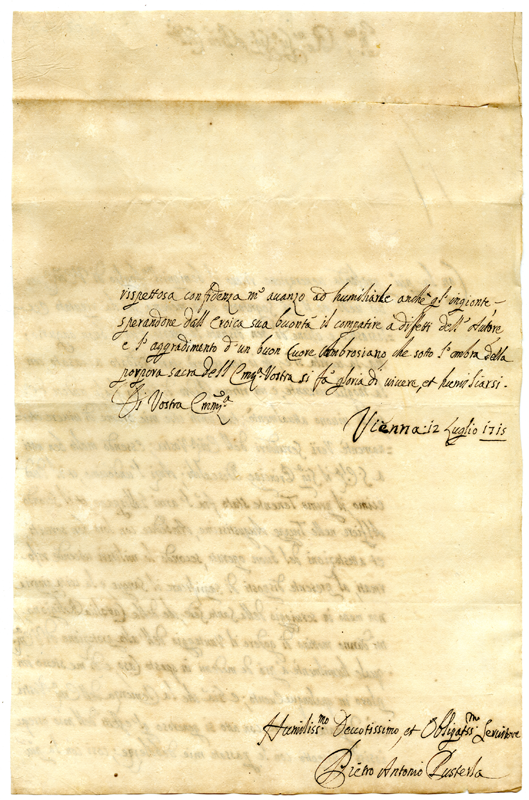 rispettosa confidenza m'avanzo ad humiliarle anche gl'ingionte
sperandone dall'eroica sua buontà il compatire a difetti dell'
e l'aggradimento d'un buon Cuore Ambrosiano, che sotto l'ombra della
porpora sacra dell'Em.ª Vostra si fà gloria di vivere, et humiliarsi.
Di Vostra Em.ª
Vienna: 12 Luglio 1715
Humiliss.mo Devotissimo, et Obligatiss.mo Servitore
Pietro Antonio Pusterla